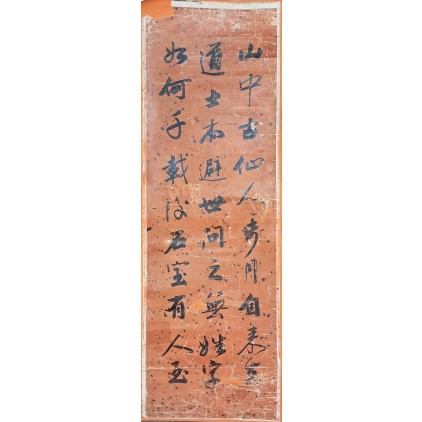 山中古仙人步月自来
道士本避世問之無姓字
如何千載後石室有人至